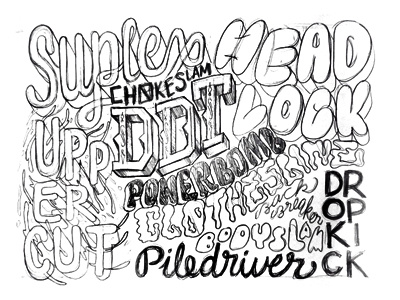 Suplex
HEAD
LOCK
CHOKESLAM
DDT
UPP
ER
CUT
POWERBOMB
CLOTHESLINE
BODYSLAM
Piledriver
DR
OP
KI
CK